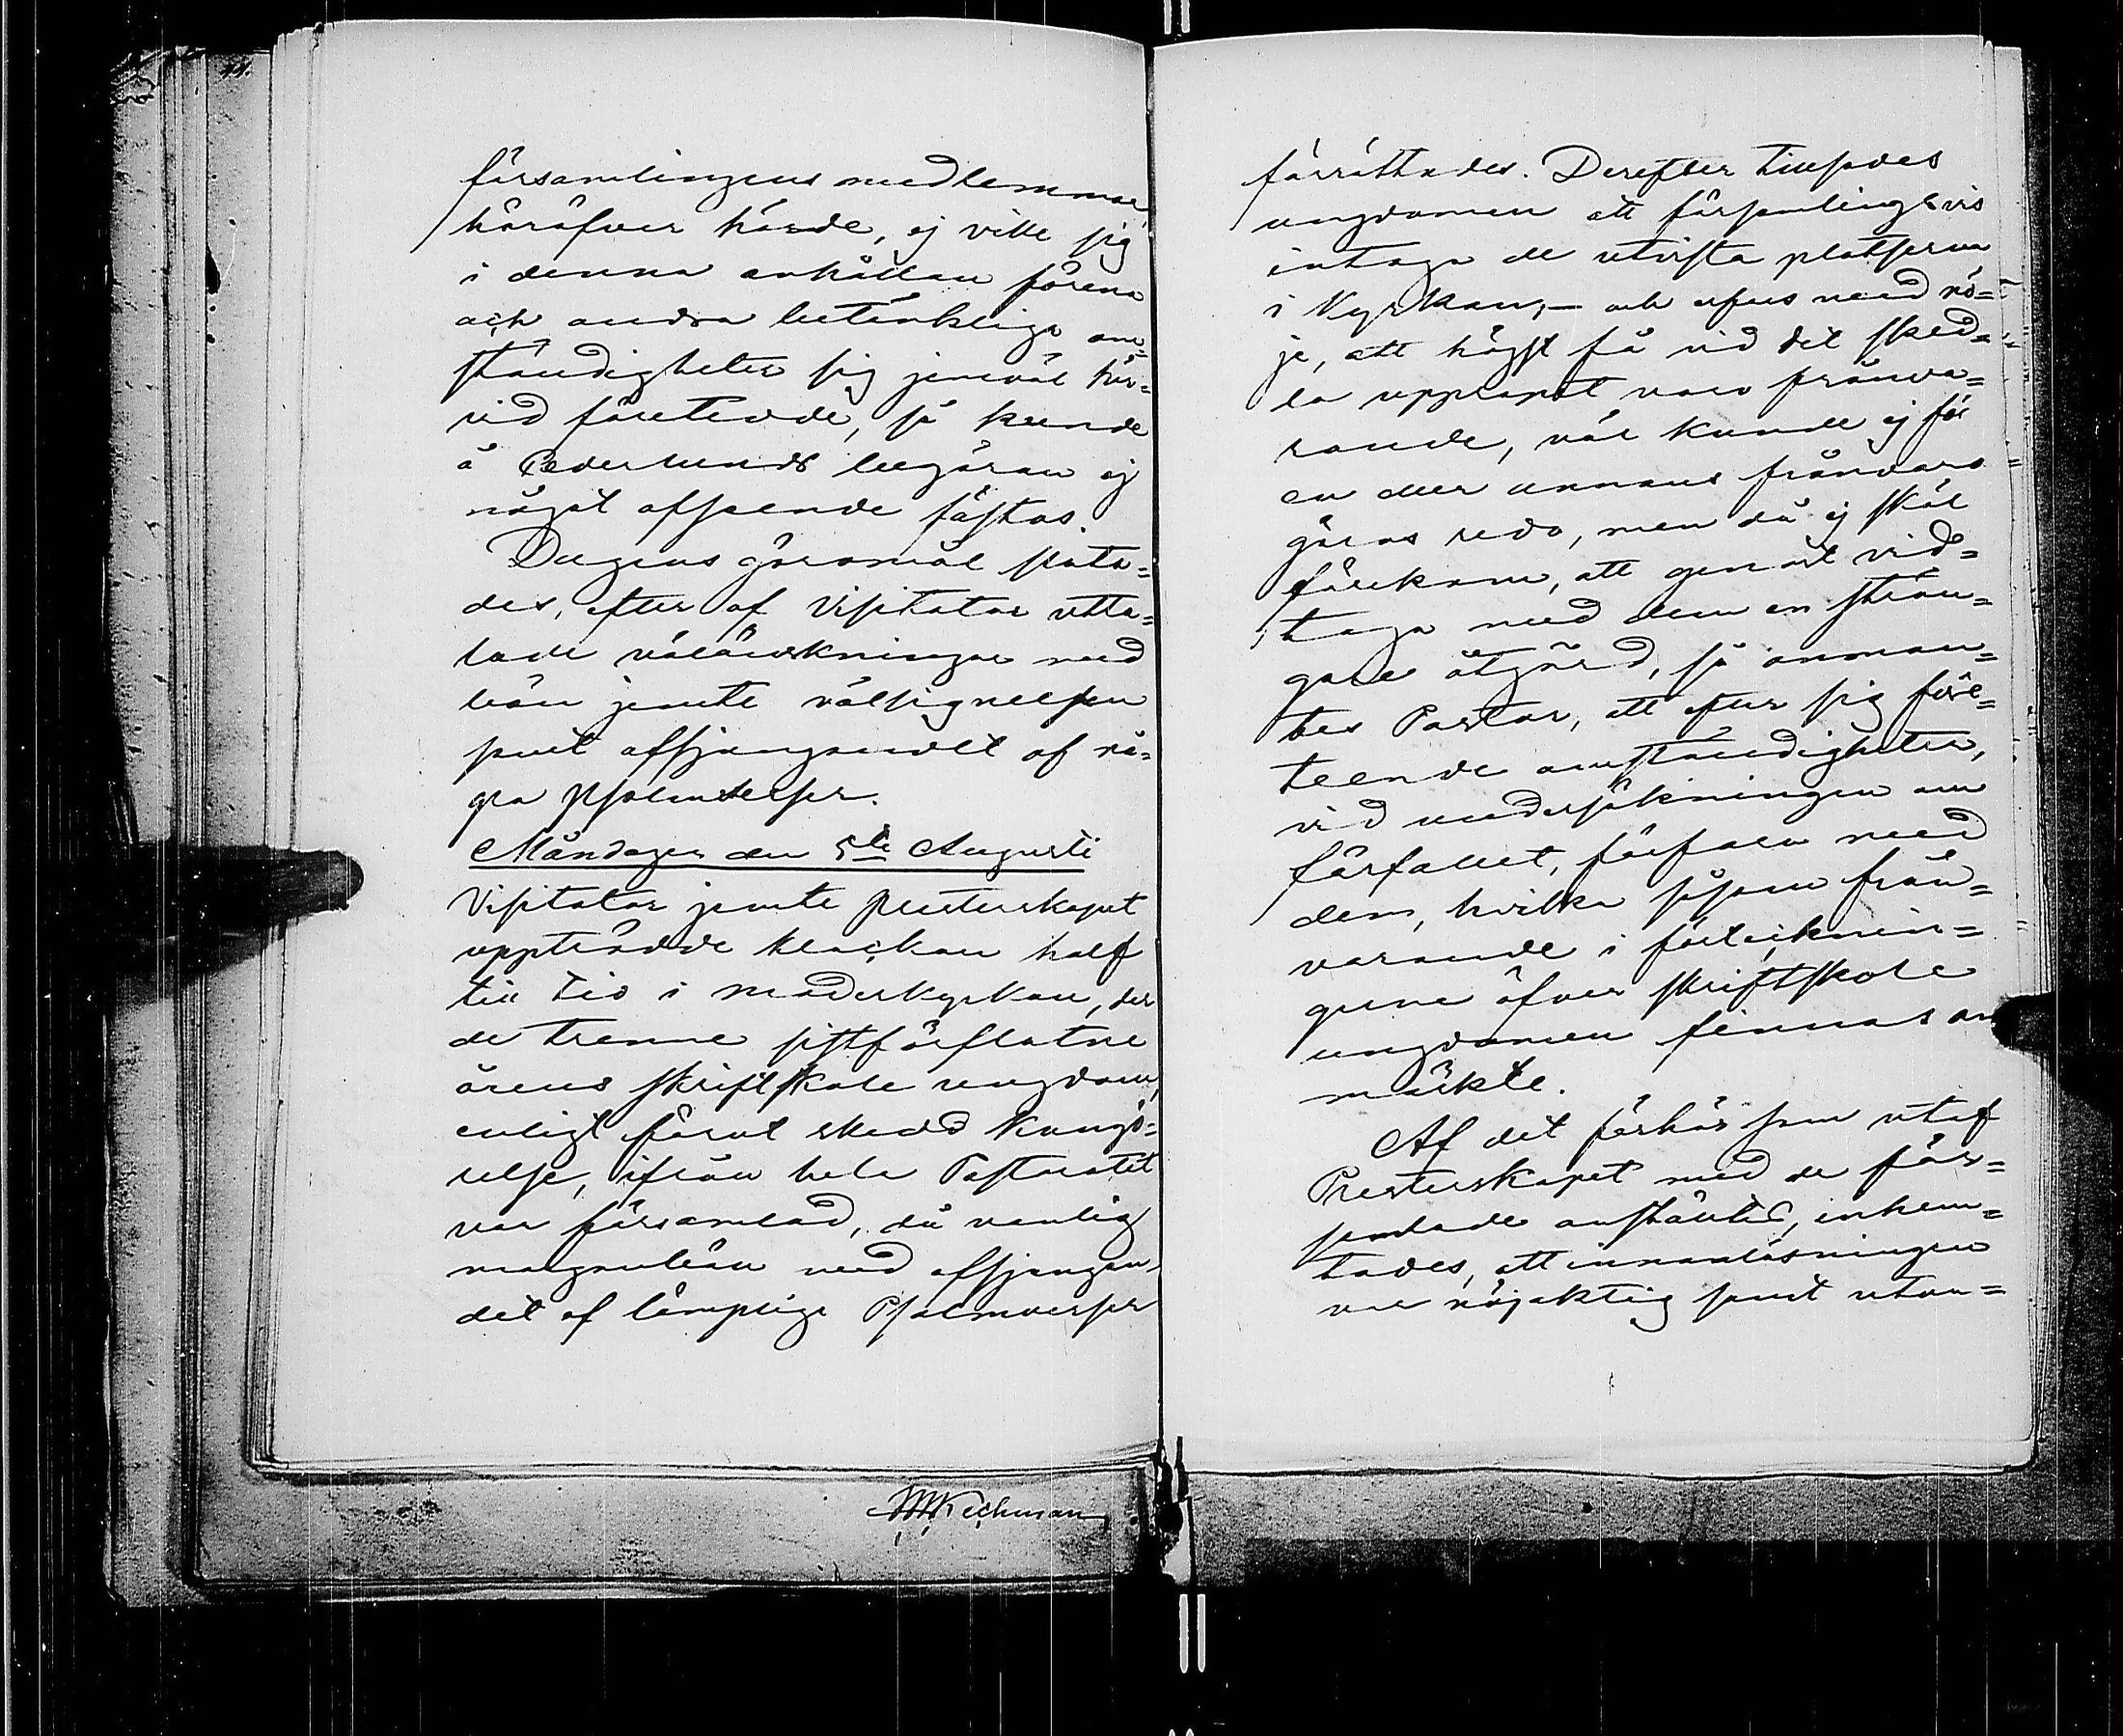 församlingens medlemmar,
häröfver hörde, ej ville sig
i denna anhållan förena
och andra betänkliga om=
ständigheter sig jemväl här=
vid företedde, så kunde
å Cederlunds begäran ej
något afseende fästas.
Dagens göromål sluta=
des, efter af Visitator utta=
lade välönskningar med
bön jemte välsignelsen
samt afsjungandet af nå=
gra psalmverser.
Måndagen den 5te Augusti
Visitator jemte presterskapet
uppträdde klockan half
till tio i moderkyrkan, der
de trenne sistförflutne
årens skriftskole ungdom,
enligt förut skedd kungö=
relse, ifrån hela Pastoratet
var församlad, då vanlig
morgonbön med afsjungan=
det af lämpliga Psalmverser
förrättades. Derefter tillsades
ungdomen att församlingsvis
intaga de utvista platserna
i Kyrkan, – och afsens med nö=
je, att högst få vid det sked=
da uppropet voro frånva=
rande, väl kunde ej för
en eller annans frånvaro
göras redo, men då ej skäl
förekom, att genast vid=
taga med dem en strän=
gare åtgärd, så anman=
tes Pastor, att efter sig före=
teende omständigheter,
vid undersökningen om
förfallet, förfara med
dem, hvilka såsom från=
varande i förtecknin=
garne öfver skriftskole
ungdomen finnas an
märkte.
Af det förhör som utaf
Presterskapet med de för=
samlade anställtes, inhem=
tades, att innanläsningen
var nöjaktig samt utan=